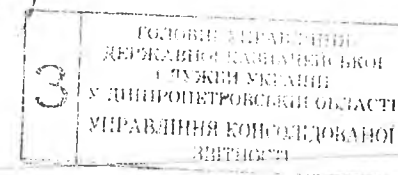 3
ГОЛОВНЕ УПРАВЛІННЯ
ДЕРЖАВНОЇ КАЗНАЧЕЙСЬКОЇ
СЛУЖБИ УКРАЇНИ
У ДНІПРОПЕТРОВСЬКІЙ ОБЛАСТІ
УПРАВЛІННЯ КОНСОЛІДОВАНОЇ
ЗВІТНОСТІ